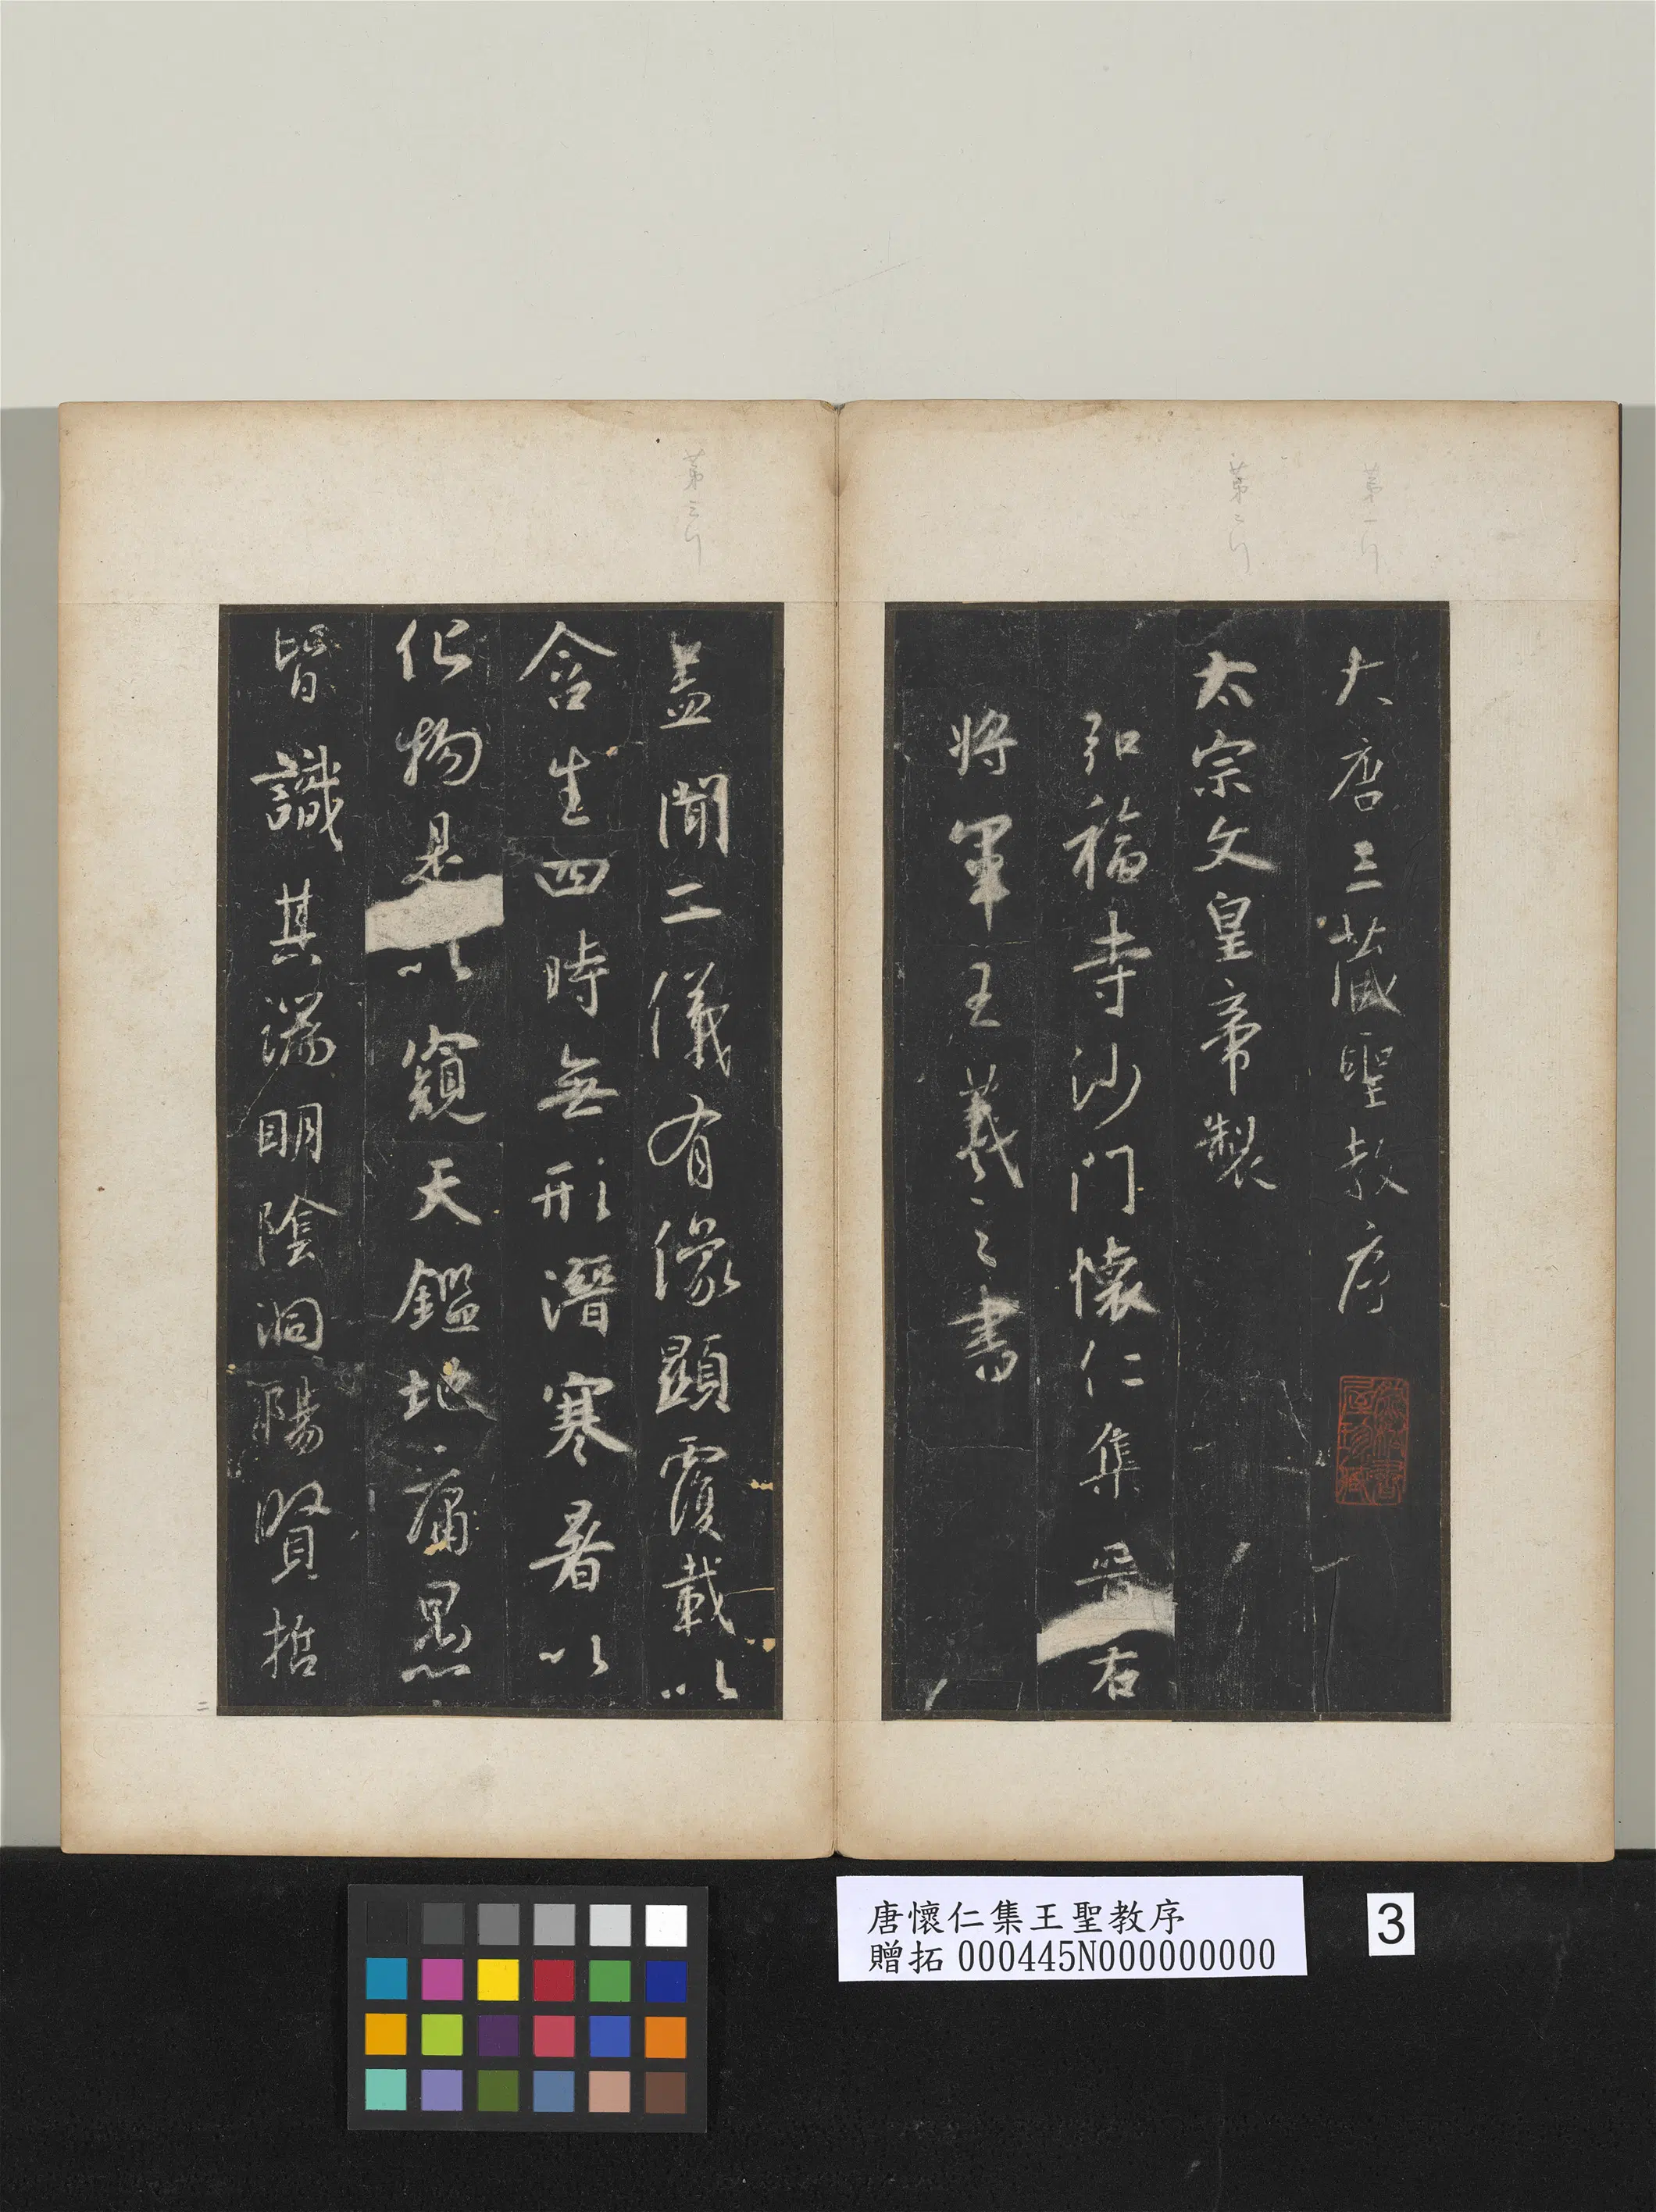 第一行
第二行
大唐三藏聖教序
太宗文皇帝製
弘福寺沙門懷仁集晉右
將軍王羲之書
第三行
蓋聞二儀有像顯覆載以
含生四時無形潛寒暑以
化物是以窺天鑑地庸愚
皆識其端明陰洞陽賢哲
二
唐懷仁集王聖教序
贈拓 000445N000000000
3